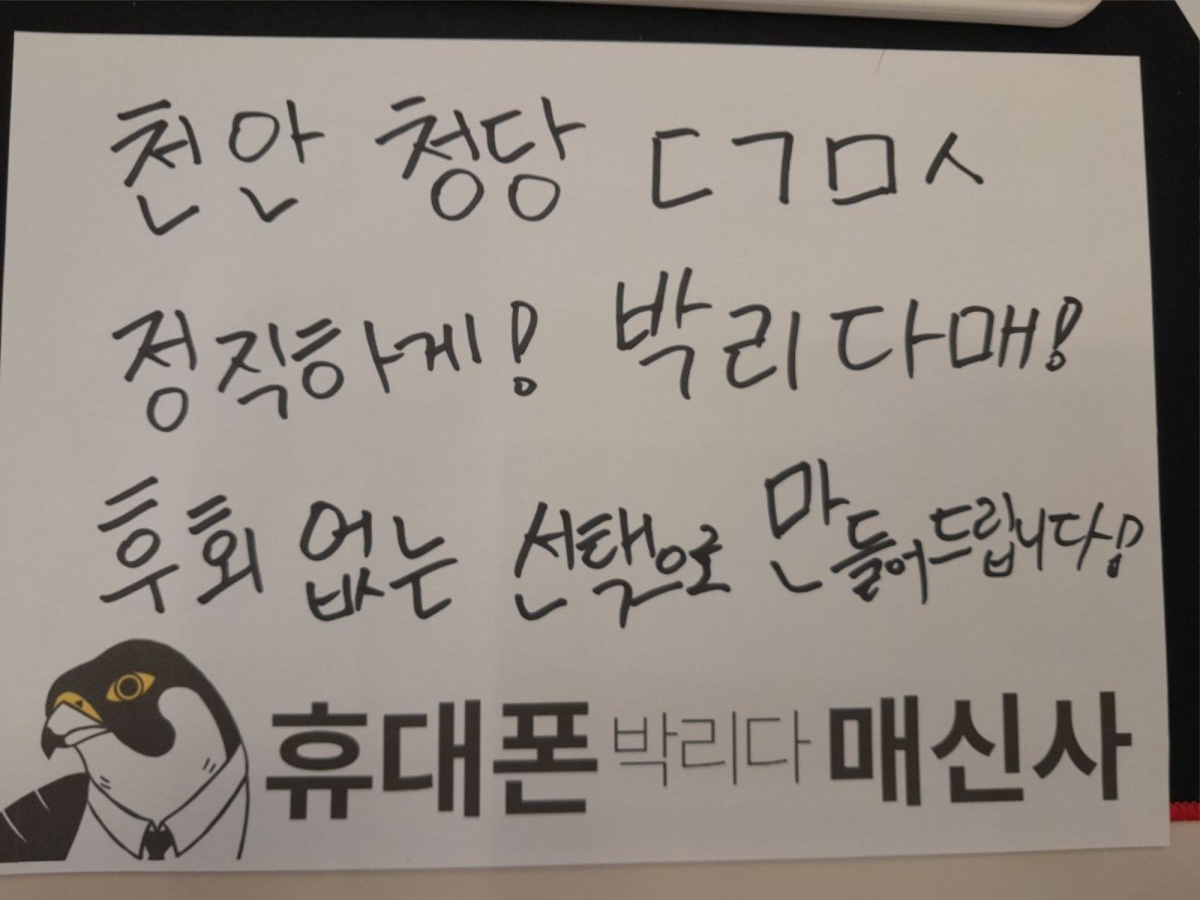 천안 청당 ㄷㄱㅁㅅ
정직하게! 박리다매!
후회 없는 선택으로 만들어드립니다!
휴대폰 박리다 매신사